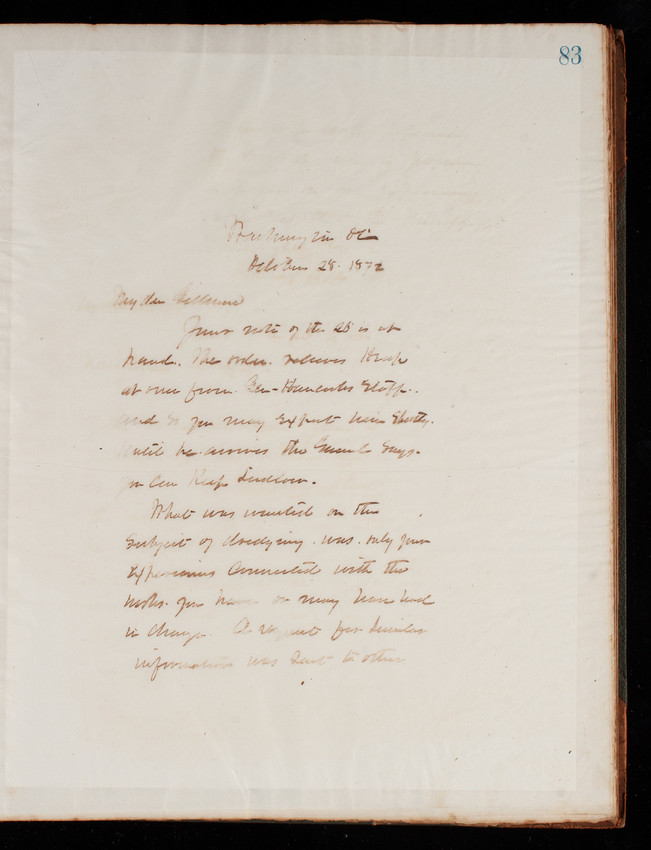 83
Washington DC
October 28. 1872
My dear Gillmore
Your note of the 26 is at
hand. The order relieves Heap
at once from Gen. Hancocks Staff.
and so you may expect him shortly.
Until he arrives the General says
you can keep Ludlow.
What was wanted on the
subject of dredging. was. only your
experience connected with the
works you have or may have had
in charge. A request for similar
information was sent to other